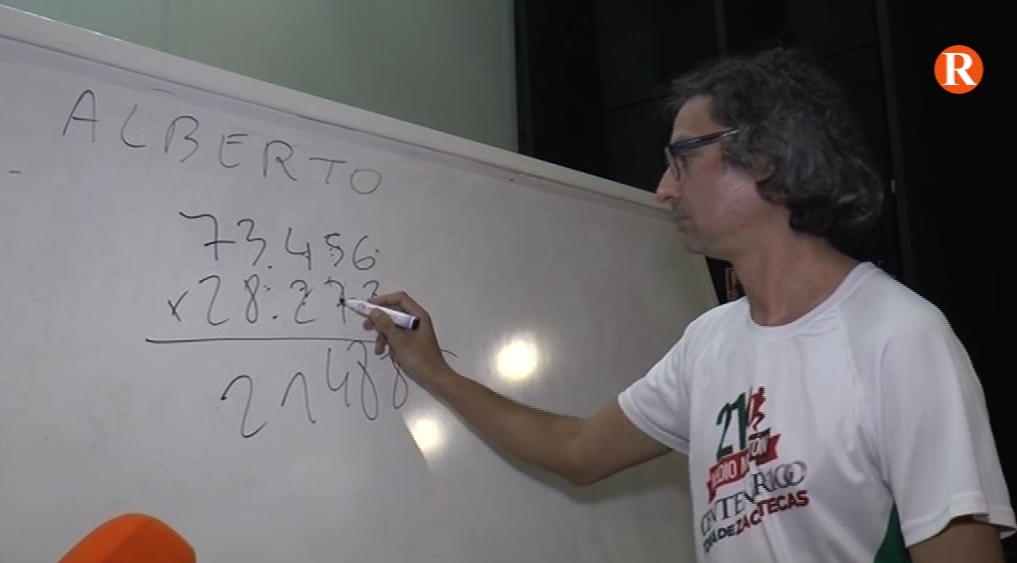 R
ALBERTO
73.456
x 28.273
21488
21
TOMA DE ZACATECAS